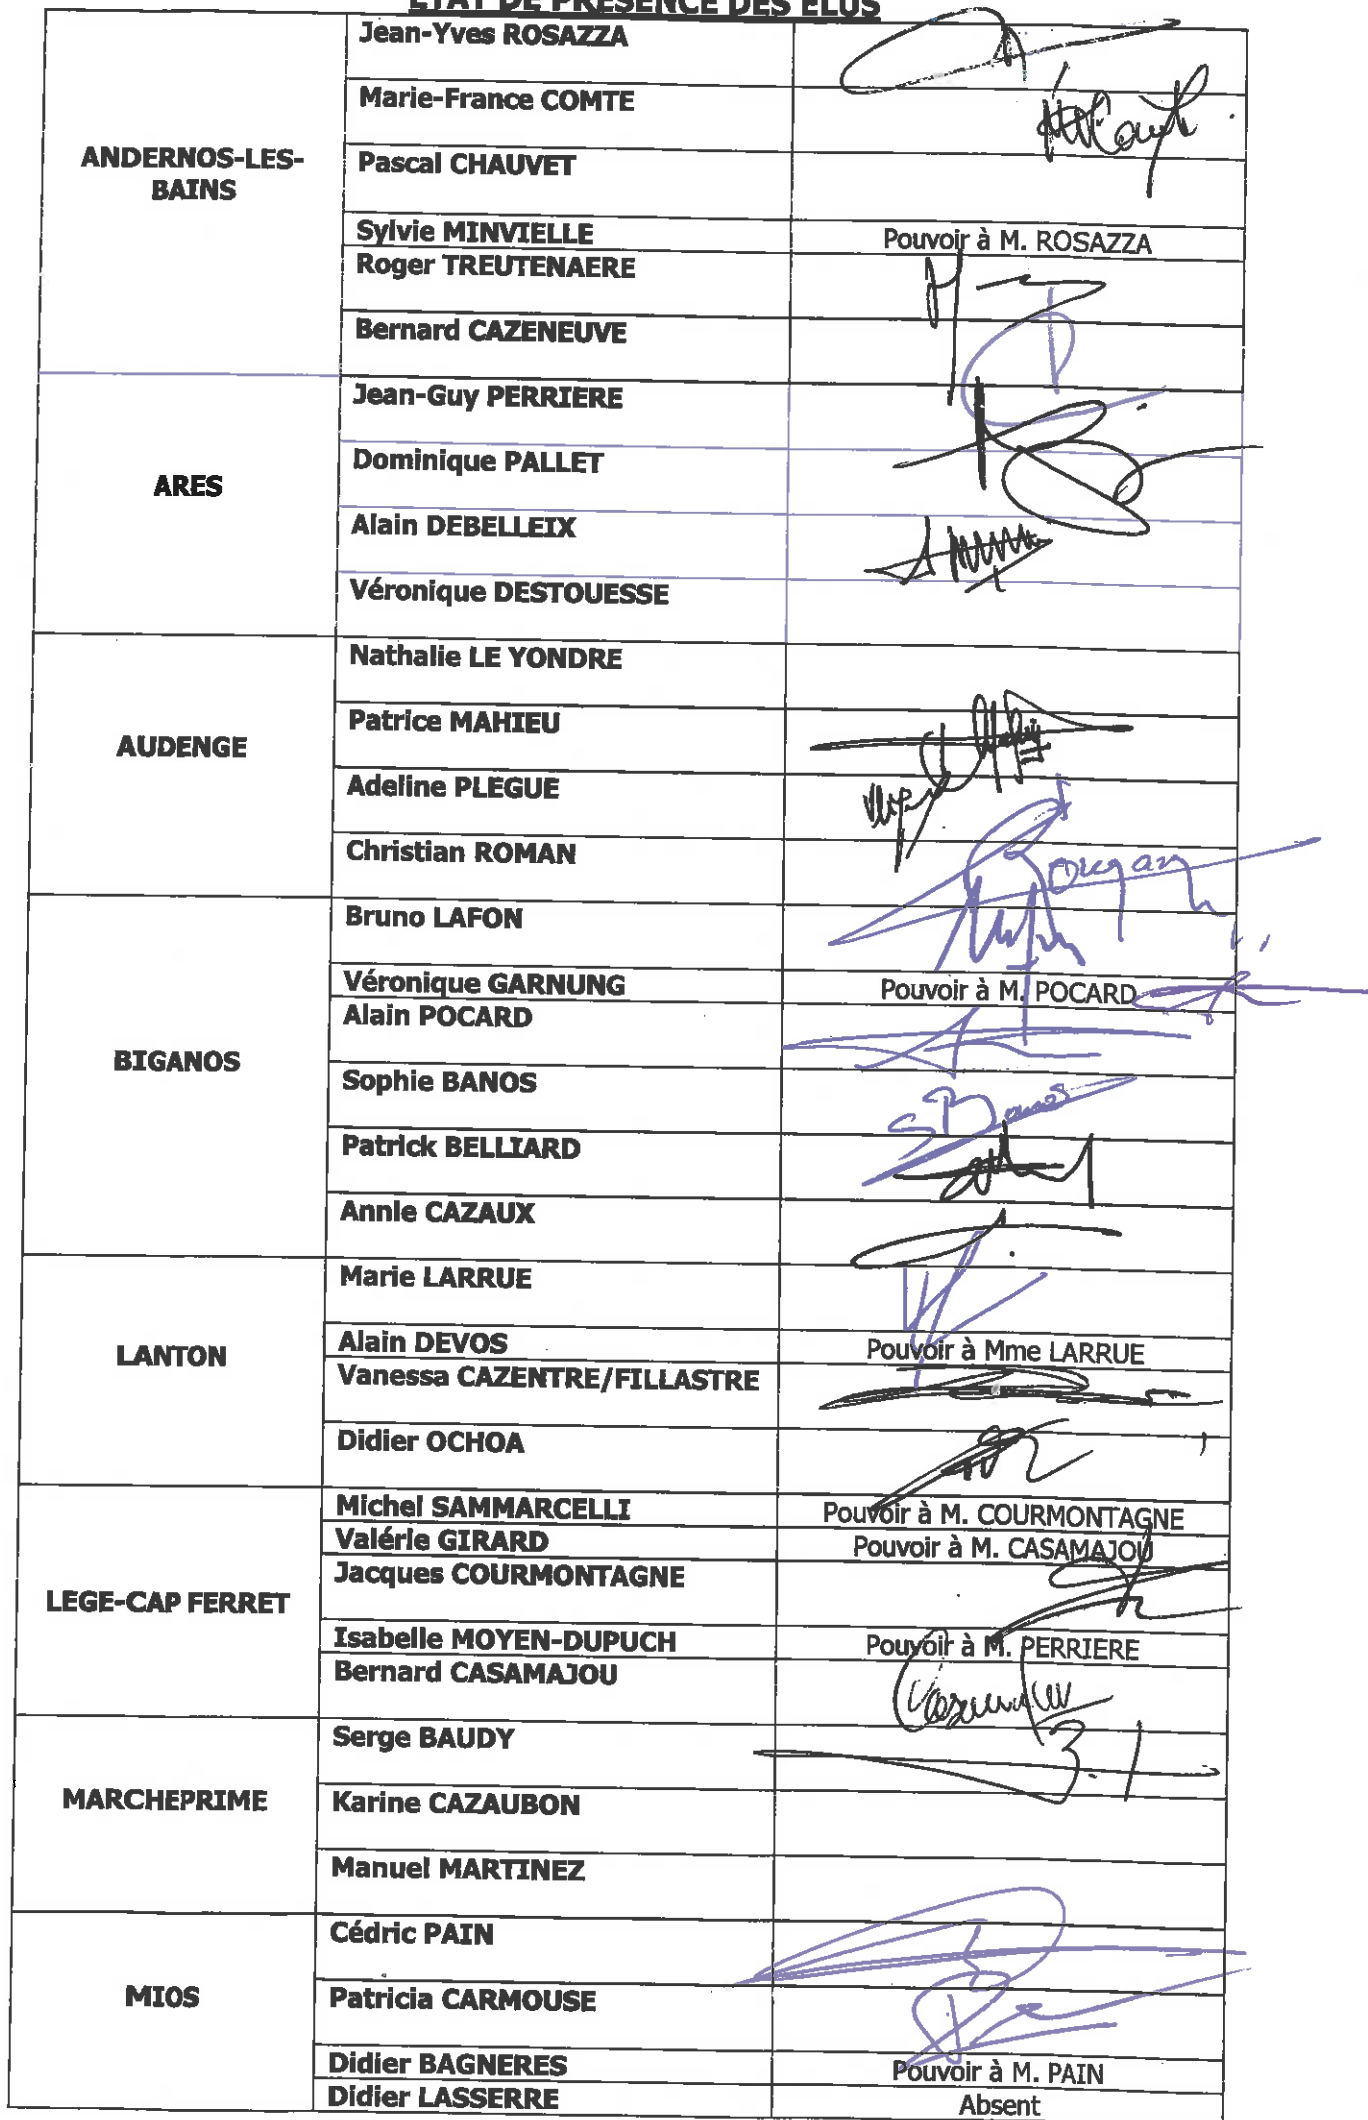 ETAT DE PRESENCE DES ELUS
ANDERNOS-LES-
BAINS
Jean-Yves ROSAZZA
Marie-France COMTE
Pascal CHAUVET
Sylvie MINVIELLE Pouvoir à M. ROSAZZA
Roger TREUTENAERE
Bernard CAZENEUVE
ARES
Jean-Guy PERRIERE
Dominique PALLET
Alain DEBELLEIX
Véronique DESTOUESSE
AUDENGE
Nathalie LE YONDRE
Patrice MAHIEU
Adeline PLEGUE
Christian ROMAN
BIGANOS
Bruno LAFON
Véronique GARNUNG Pouvoir à M. POCARD
Alain POCARD
Sophie BANOS
SBanos
Patrick BELLIARD
Annie CAZAUX
LANTON
Marie LARRUE
Alain DEVOS Pouvoir à Mme LARRUE
Vanessa CAZENTRE/FILLASTRE
Didier OCHOA
LEGE-CAP FERRET
Michel SAMMARCELLI Pouvoir à M. COURMONTAGNE
Valérie GIRARD Pouvoir à M. CASAMAJOU
Jacques COURMONTAGNE
Isabelle MOYEN-DUPUCH Pouvoir à M. PERRIERE
Bernard CASAMAJOU
MARCHEPRIME
Serge BAUDY
Karine CAZAUBON
Manuel MARTINEZ
MIOS
Cédric PAIN
Patricia CARMOUSE
Didier BAGNERES Pouvoir à M. PAIN
Didier LASSERRE Absent